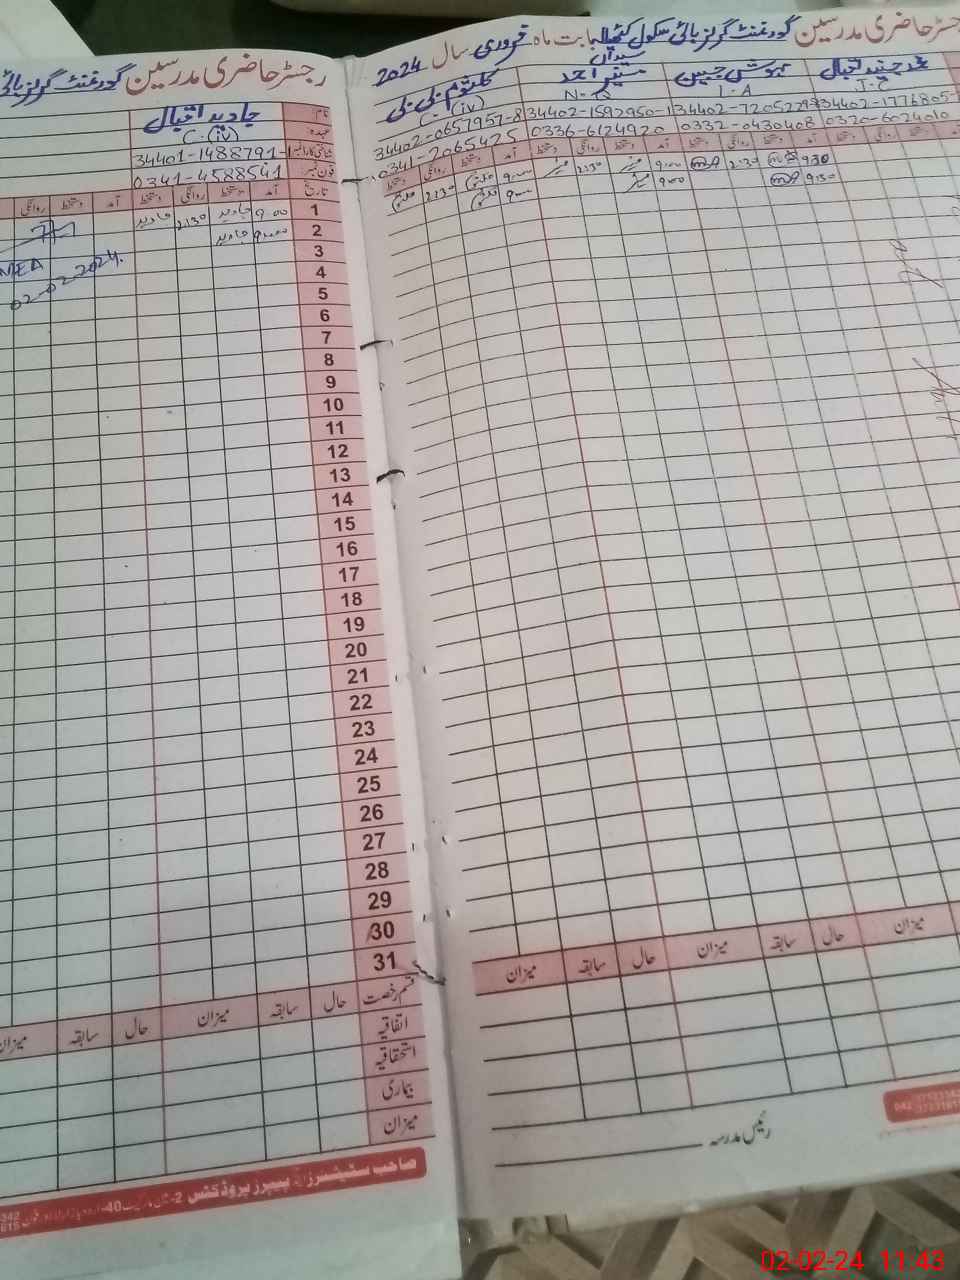 رجسٹر حاضری مدرسین گورنمنٹ گرلز ہائی سکول کٹھیالہ سیداں بابت ماہ فروری سال 2024
جنید اقبال
J-C
34402-1776805-
0320-6024010
I-A
34402-7205229-
0332-0430408
منیر احمد
N-Q
34402-1592950-1
0336-6124920
کلثوم بی بی
C-(iv)
34402-0657957-8
0341-2065425
آمد دستخط روانگی دستخط آمد دستخط روانگی دستخط آمد دستخط روانگی دستخط
9:30 2:30 9:00 منیر 2:30 منیر 9:00 کلثوم 2:30 کلثوم
9:30 9:00 منیر 9:00 کلثوم
میزان حال سابقہ میزان حال سابقہ میزان
رئیس مدرسہ
042
رجسٹر حاضری مدرسین گورنمنٹ گرلز ہائی
نام جاوید اقبال
عہدہ C-(iv)
شناختی کارڈ نمبر 34401-1488791-1
فون نمبر 0341-4588541
تاریخ آمد دستخط روانگی دستخط آمد دستخط روانگی
1 9:00 جاوید 2:30 جاوید
2 9:00 جاوید
MEA
02-02-2024.
3
4
5
6
7
8
9
10
11
12
13
14
15
16
17
18
19
20
21
22
23
24
25
26
27
28
29
30
31
قسم رخصت حال سابقہ میزان حال سابقہ میزان
اتفاقیہ
استحقاقیہ
بیماری
میزان
صاحب سٹیشنرز اینڈ پیپرز پروڈکٹس
02-02-24 11:43